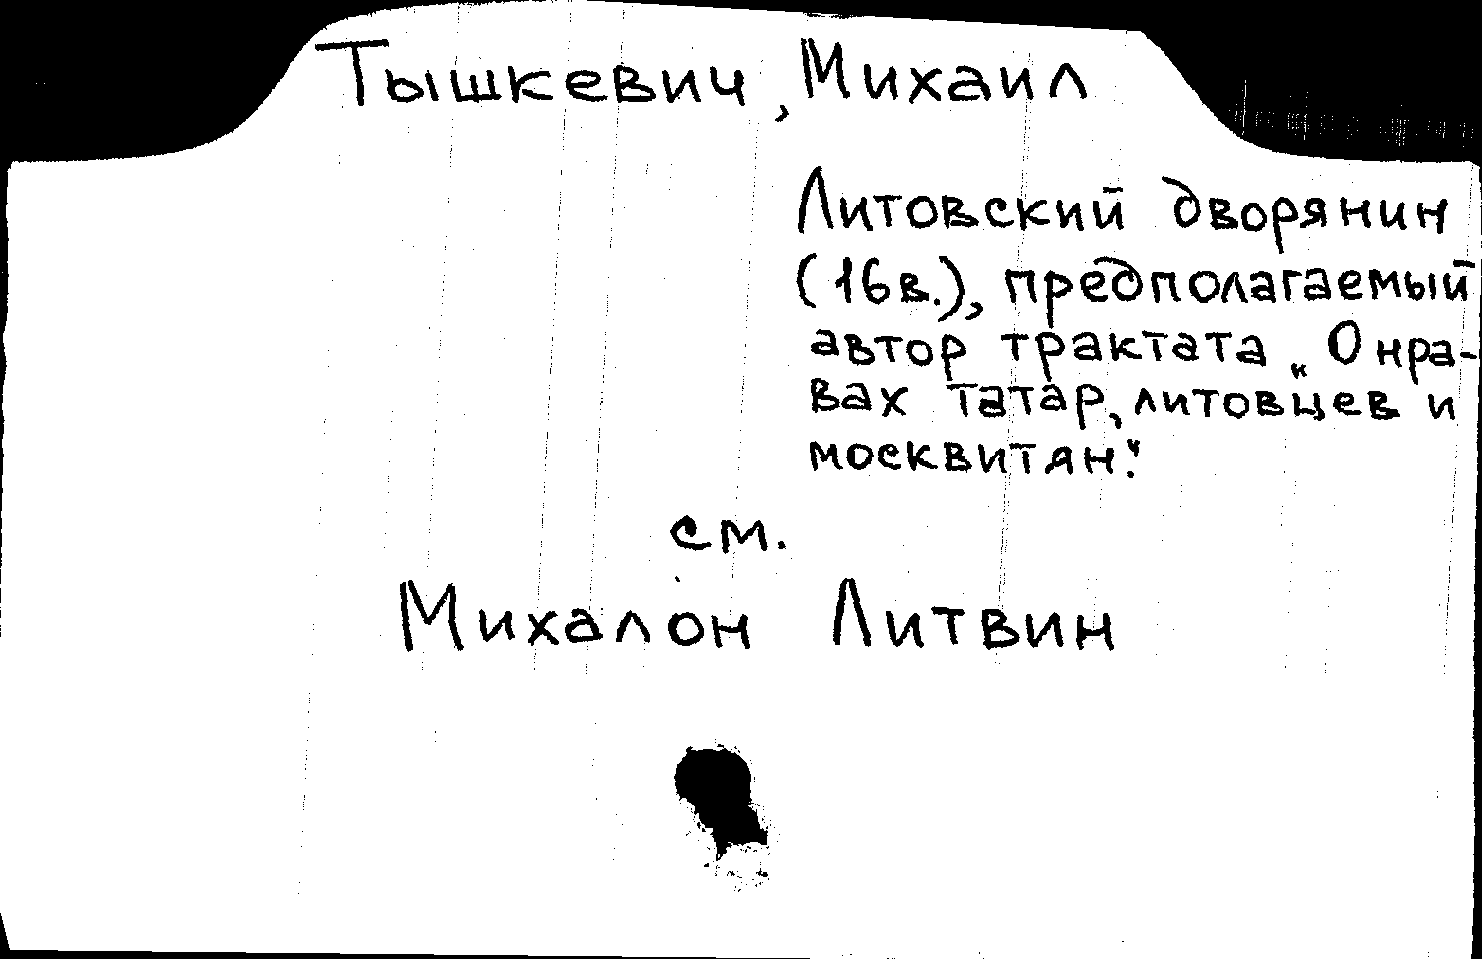 Тышкевич, Михаил
Литовский дворянин
(16в.), предполагаемый
автор трактата „О нра-
вах татар, литовцев и
москвитян."
см.
Михалон Литвин